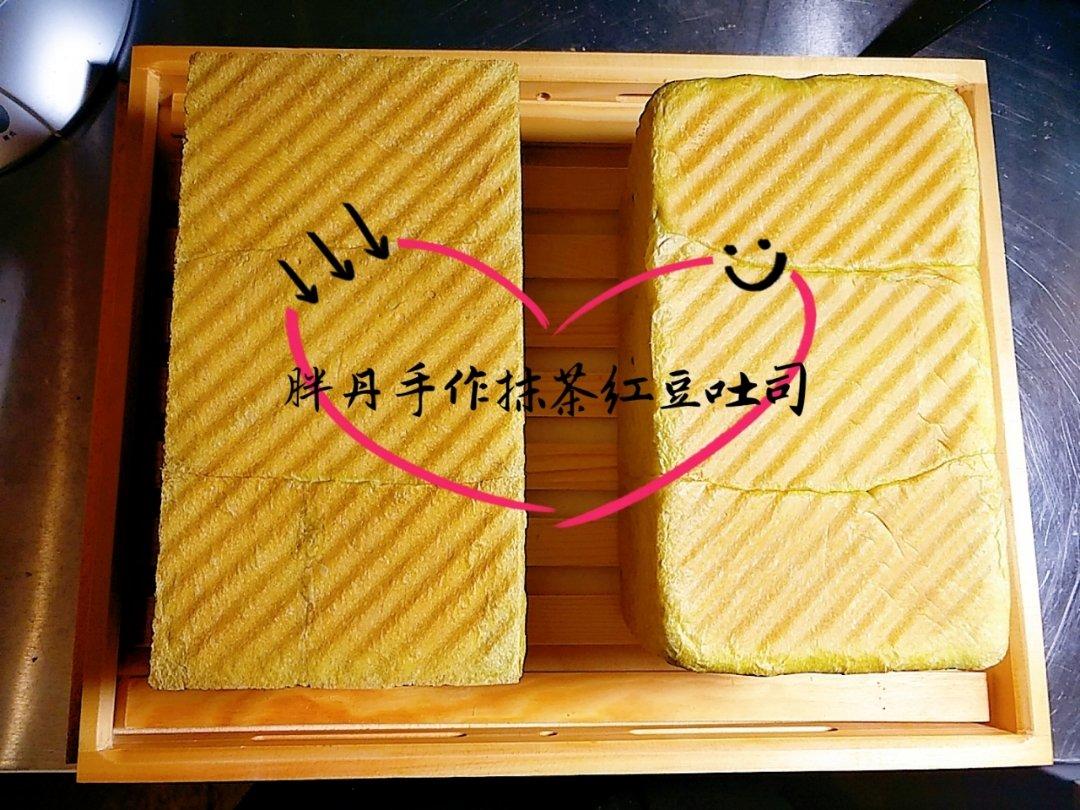 胖丹手作抹茶红豆吐司